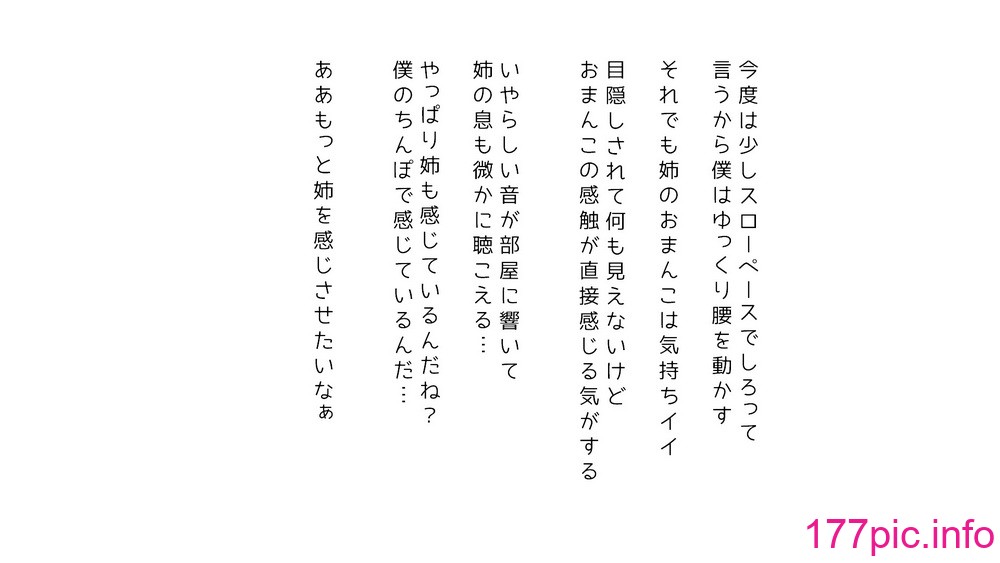 今度は少しスローペースでしろって
言うから僕はゆっくり腰を動かす
それでも姉のおまんこは気持ちイイ
目隠しされて何も見えないけど
おまんこの感触が直接感じる気がする
いやらしい音が部屋に響いて
姉の息も微かに聴こえる…
やっぱり姉も感じているんだね？
僕のちんぽで感じているんだ…
ああもっと姉を感じさせたいなぁ
177pic.info